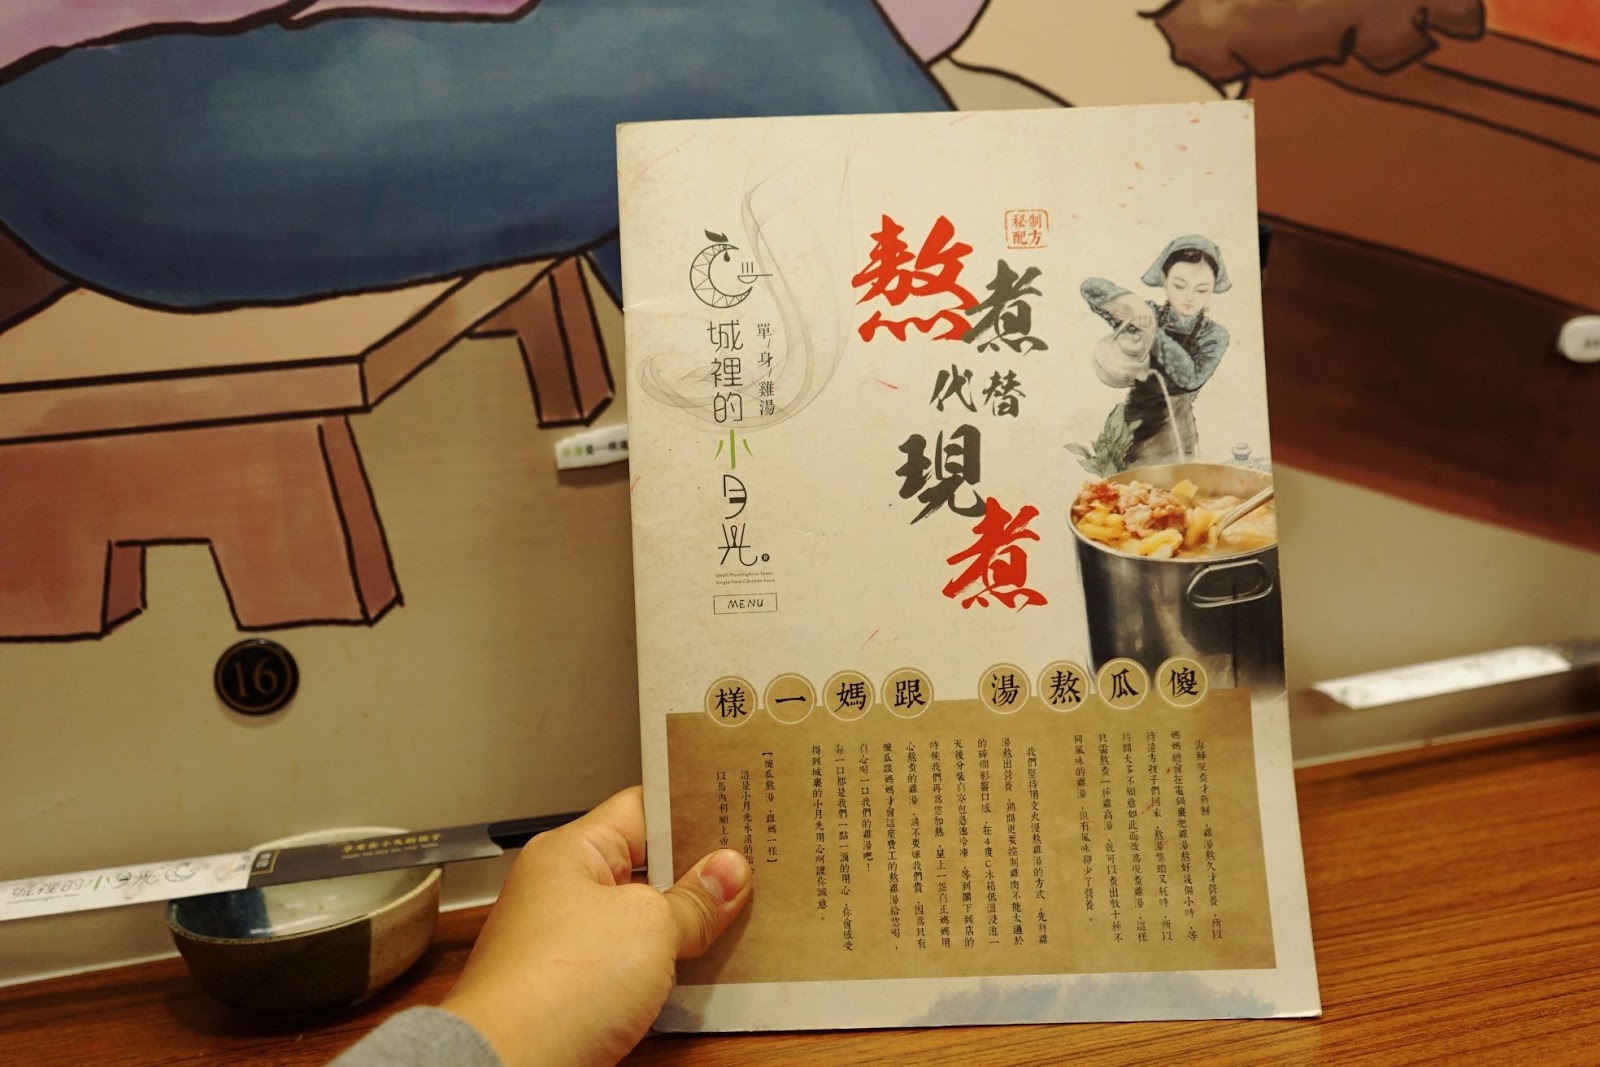 制方
秘配
熬煮
代替
現
煮
單/身/雞湯
城裡的小月光
Small Moonlight In Town
MENU
傻瓜熬湯 跟媽一樣
海鮮現煮才新鮮，雞湯熬久才營養，所以
媽媽總會在電鍋裏把雞湯熬好幾個小時，等
待遠方孩子們回來，熬湯繁瑣又耗時，所以
坊間大多不願意如此而改為現煮雞湯，這樣
只需熬煮一種雞高湯，就可以煮出數十種不
同風味的雞湯，但有風味卻少了營養。
我們堅持用文火慢熬雞湯的方式，先將雞
湯熬出營養，期間更要控制雞肉不能太過於
的碎爛影響口感，在4度C冰箱低溫浸泡一
天後分裝真空包急速冷凍，等到閣下到店的
時候我們再為您加熱，呈上一盅真正媽媽用
心熬煮的雞湯，請不要嫌我們貴，因為只有
傻瓜跟媽媽才會這麼費工的熬雞湯給您喝，
真心喝一口我們的雞湯吧！
每一口都是我們一點一滴的用心，你會感受
得到城裏的小月光用心呵護你誠意。
【傻瓜熬湯，跟媽一樣】
這是小月光永遠的
以馬內利願上帝
16